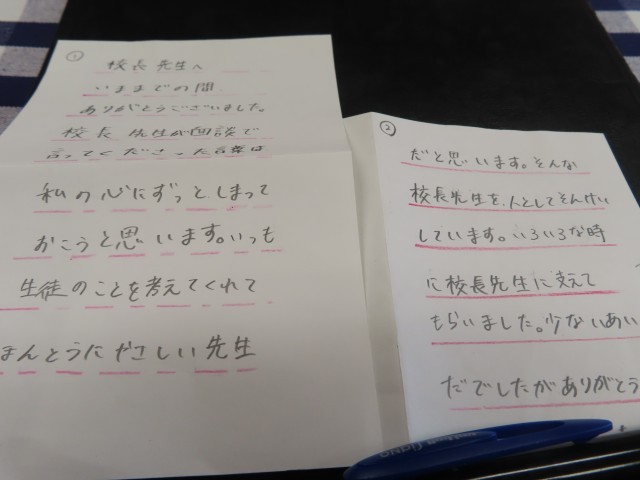 ①
校長先生へ
いままでの間
ありがとうございました。
校長先生が面談で
言ってくださった言葉は
私の心にずっとしまって
おこうと思います。いつも
生徒のことを考えてくれて
ほんとうにやさしい先生
②
だと思います。そんな
校長先生を、人としてそんけい
しています。いろいろな時
に校長先生に支えて
もらいました。少ないあい
だでしたがありがとう